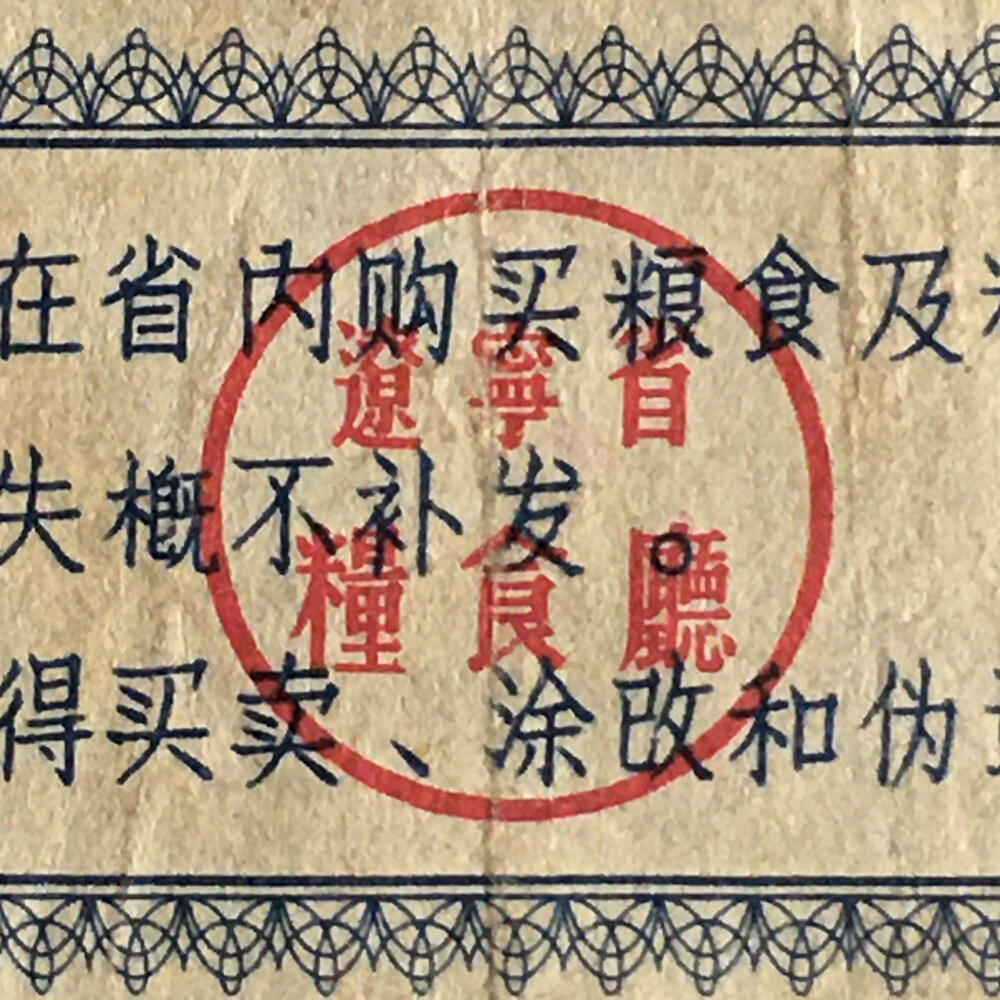 在省内购买粮食及
失概不补发。
得买卖、涂改和伪
遼寧省
糧食廳